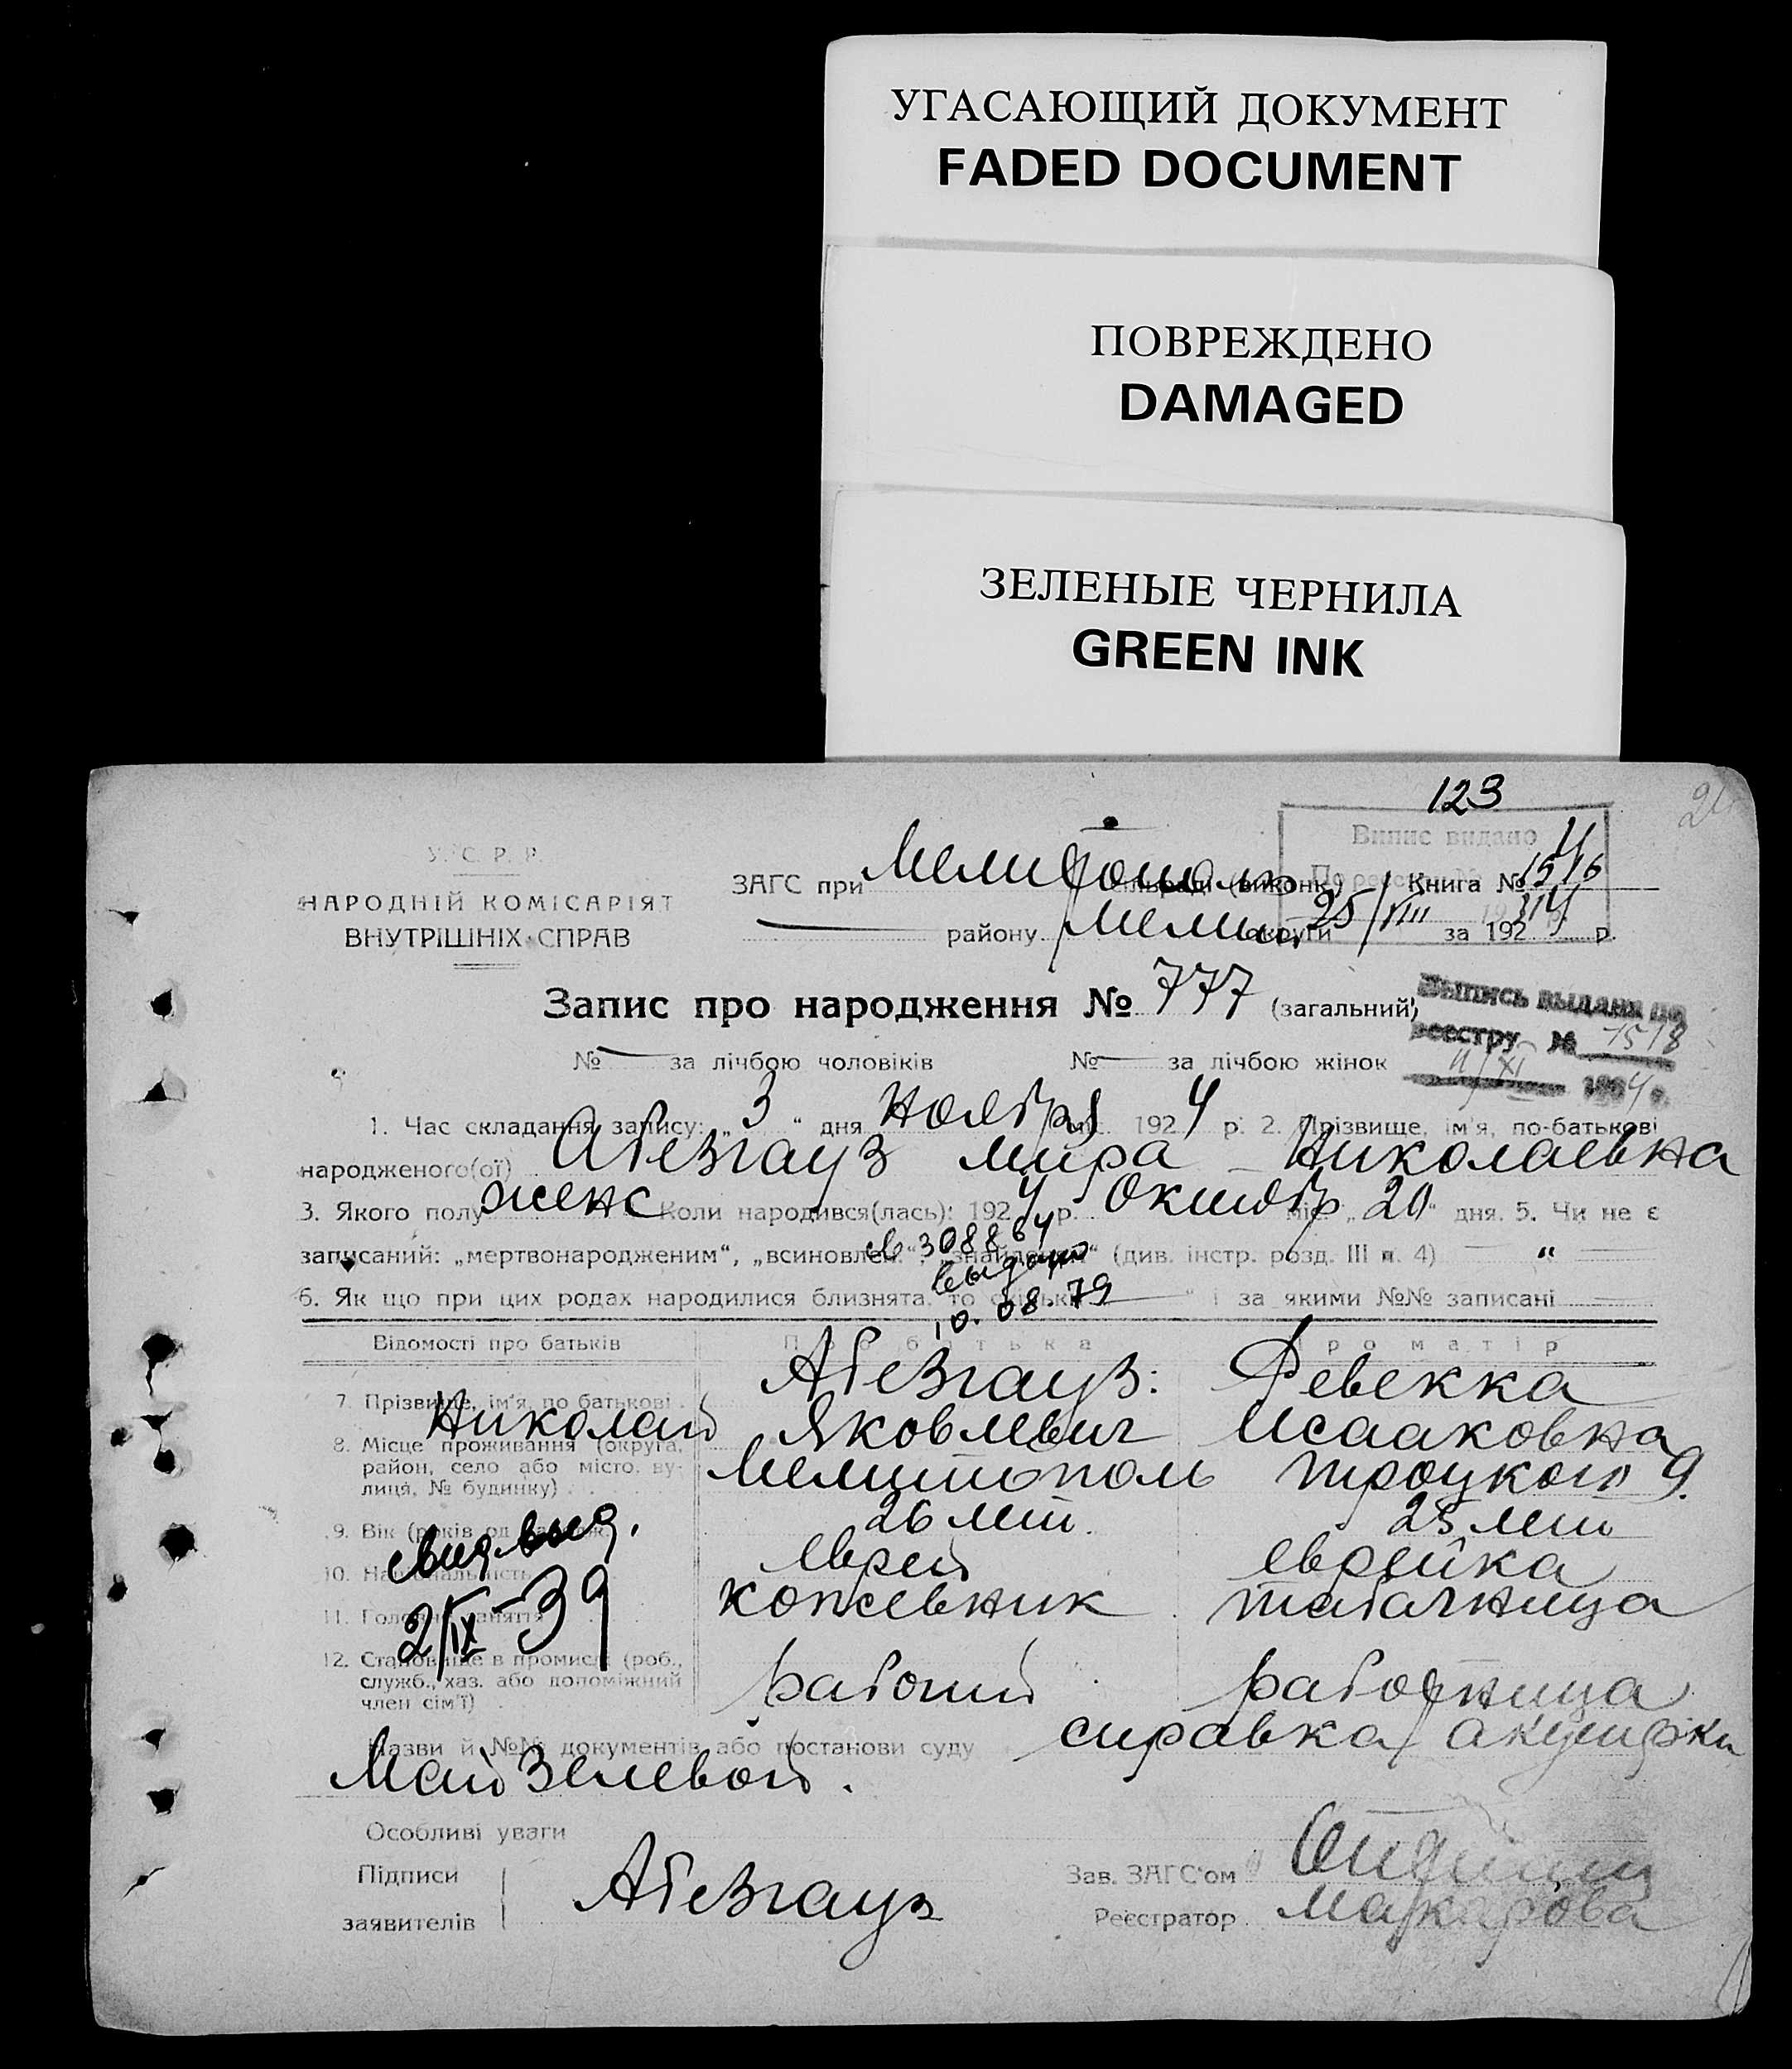 УГАСАЮЩИЙ ДОКУМЕНТ
FADED DOCUMENT
ПОВРЕЖДЕНО
DAMAGED
ЗЕЛЕНЫЕ ЧЕРНИЛА
GREEN INK
123
Випис видано
У. С. Р. Р.
НАРОДНІЙ КОМІСАРІЯТ
ВНУТРІШНІХ СПРАВ
ЗАГС при Мелитополь (виконк.) Книга № 4
1516
району Мелит. округи за 1924 р.
25/VIII
Запис про народження № 777 (загальний)
Выпись выдана по
реестру № 1518
11/XI 1964 г.
№ — за лічбою чоловіків № — за лічбою жінок
1. Час складання запису: „ 3 “ дня Ноября 1924 р. 2. Прізвище, ім'я, по-батькові
народженого(ої) Абезгауз Мира Николаевна
3. Якого полу женс Коли народився(лась): 1924 р. Октябр міс. „ 20 “ дня. 5. Чи не є
записаний: „мертвонародженим“, „всиновлен.“, „знайденим“ (див. інстр. розд. III п. 4) — “ —
№ 308864
выдано
10.08.79
6. Як що при цих родах народилися близнята, то скільки — “ і за якими №№ записані —
Відомості про батьків Про батька Про матір
7. Прізвище, ім'я, по батькові Абезгауз: Ревекка
Николай Яковлевич Исааковна
8. Місце проживання (округа, район, село або місто, вулиця, № будинку) Мелитополь Троцкого 9.
9. Вік 26 лет. 25 лет
10. Національність еврей еврейка
11. Головне заняття кожевник табачница
12. Становище в промислі (роб., служб., хаз. або допоміжний член сім'ї) рабочий работница
2/IX-39
Назви й №№ документів або постанови суду справка акушерки
Майзелевой.
Особливі уваги
Підписи
заявителів Абезгауз
Зав. ЗАГС'ом
Реєстратор Макарова